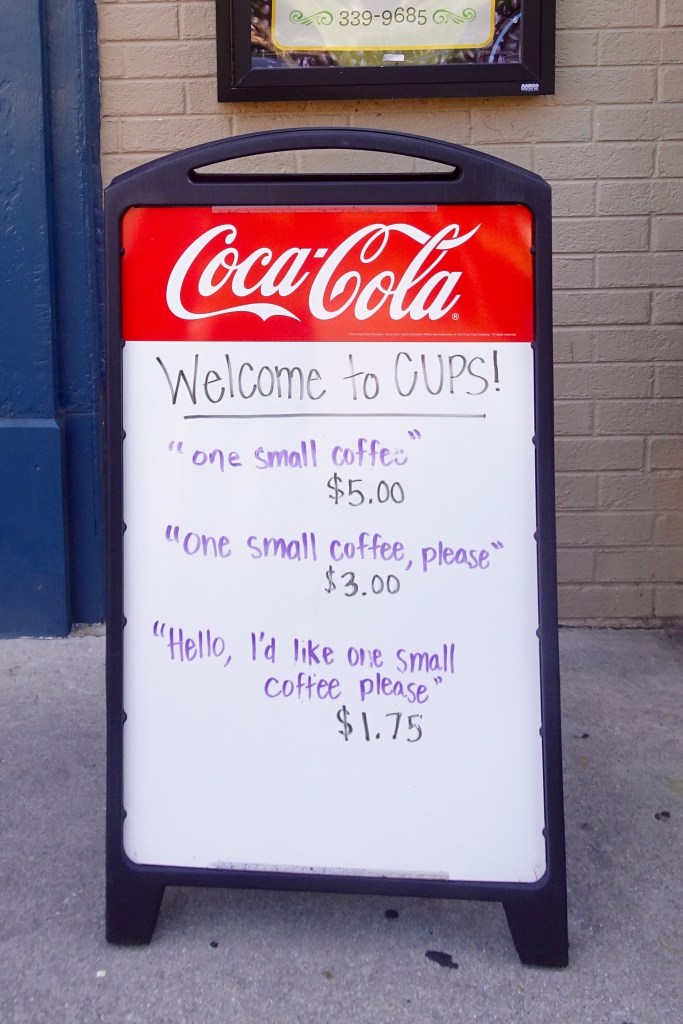 339-9685
Coca-Cola
Welcome to CUPS!
"one small coffee"
$5.00
"One small coffee, please"
$3.00
"Hello, I'd like one small
coffee please"
$1.75